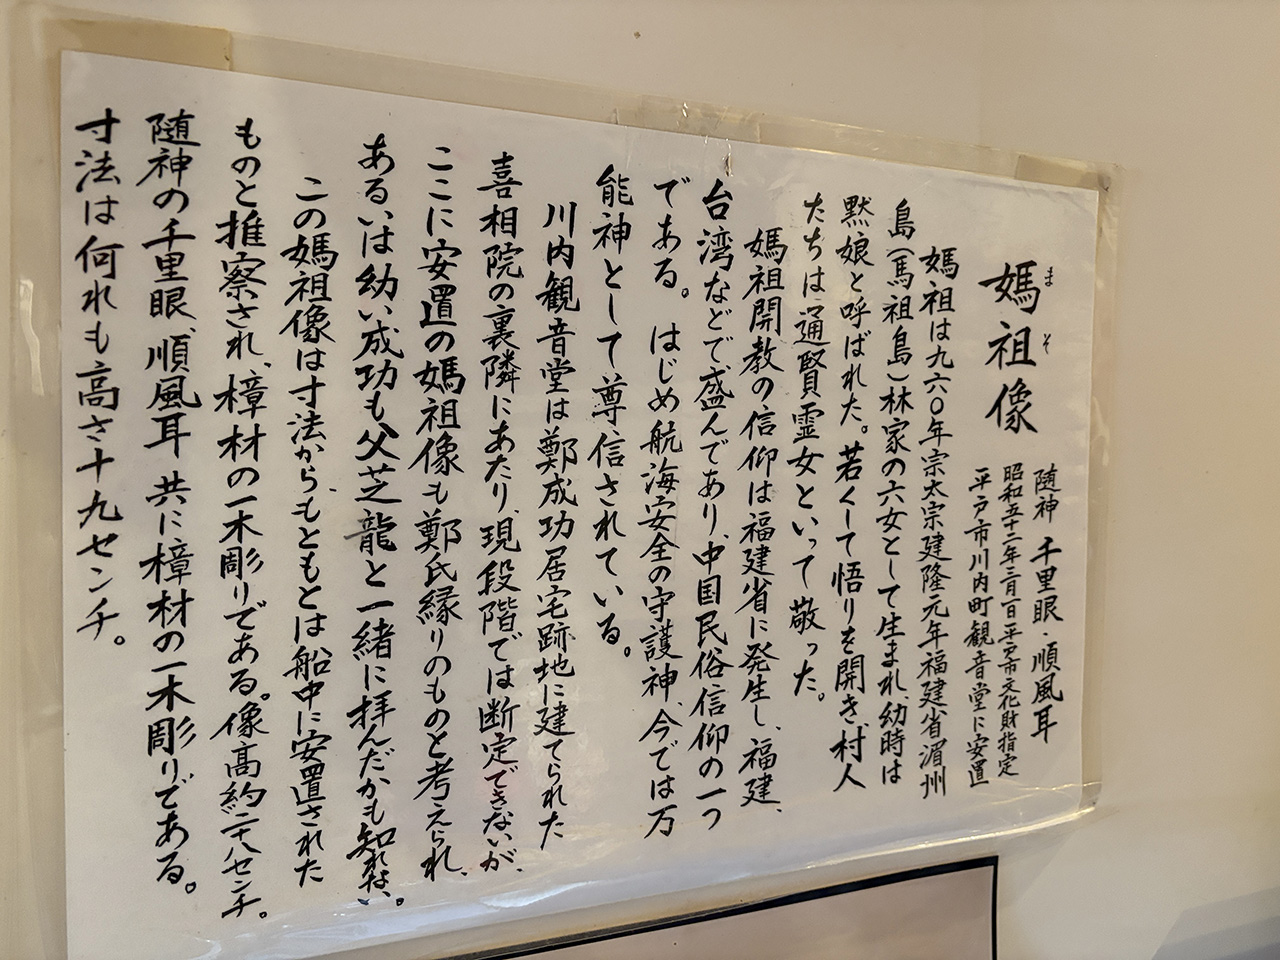 媽祖像
まそ
随神 千里眼・順風耳
昭和五十二年三月一日平戸市文化財指定
平戸市川内町観音堂に安置
媽祖は九六〇年宗太宗建隆元年福建省湄州
島(馬祖島)林家の六女として生まれ、幼時は
黙娘と呼ばれた。若くして悟りを開き、村人
たちは通賢霊女といって敬った。
媽祖開教の信仰は福建省に発生し、福建、
台湾などで盛んであり、中国民俗信仰の一つ
である。はじめ航海安全の守護神、今では万
能神として尊信されている。
川内観音堂は鄭成功居宅跡地に建てられた
喜相院の裏隣にあたり、現段階では断定できないが、
ここに安置の媽祖像も鄭氏縁りのものと考えられ、
あるいは幼い成功も父芝龍と一緒に拝んだかも知れない。
この媽祖像は寸法からもともとは船中に安置された
ものと推察され、樟材の一木彫りである。像高約二十八センチ。
随神の千里眼、順風耳 共に樟材の一木彫りである。
寸法は何れも高さ十九センチ。